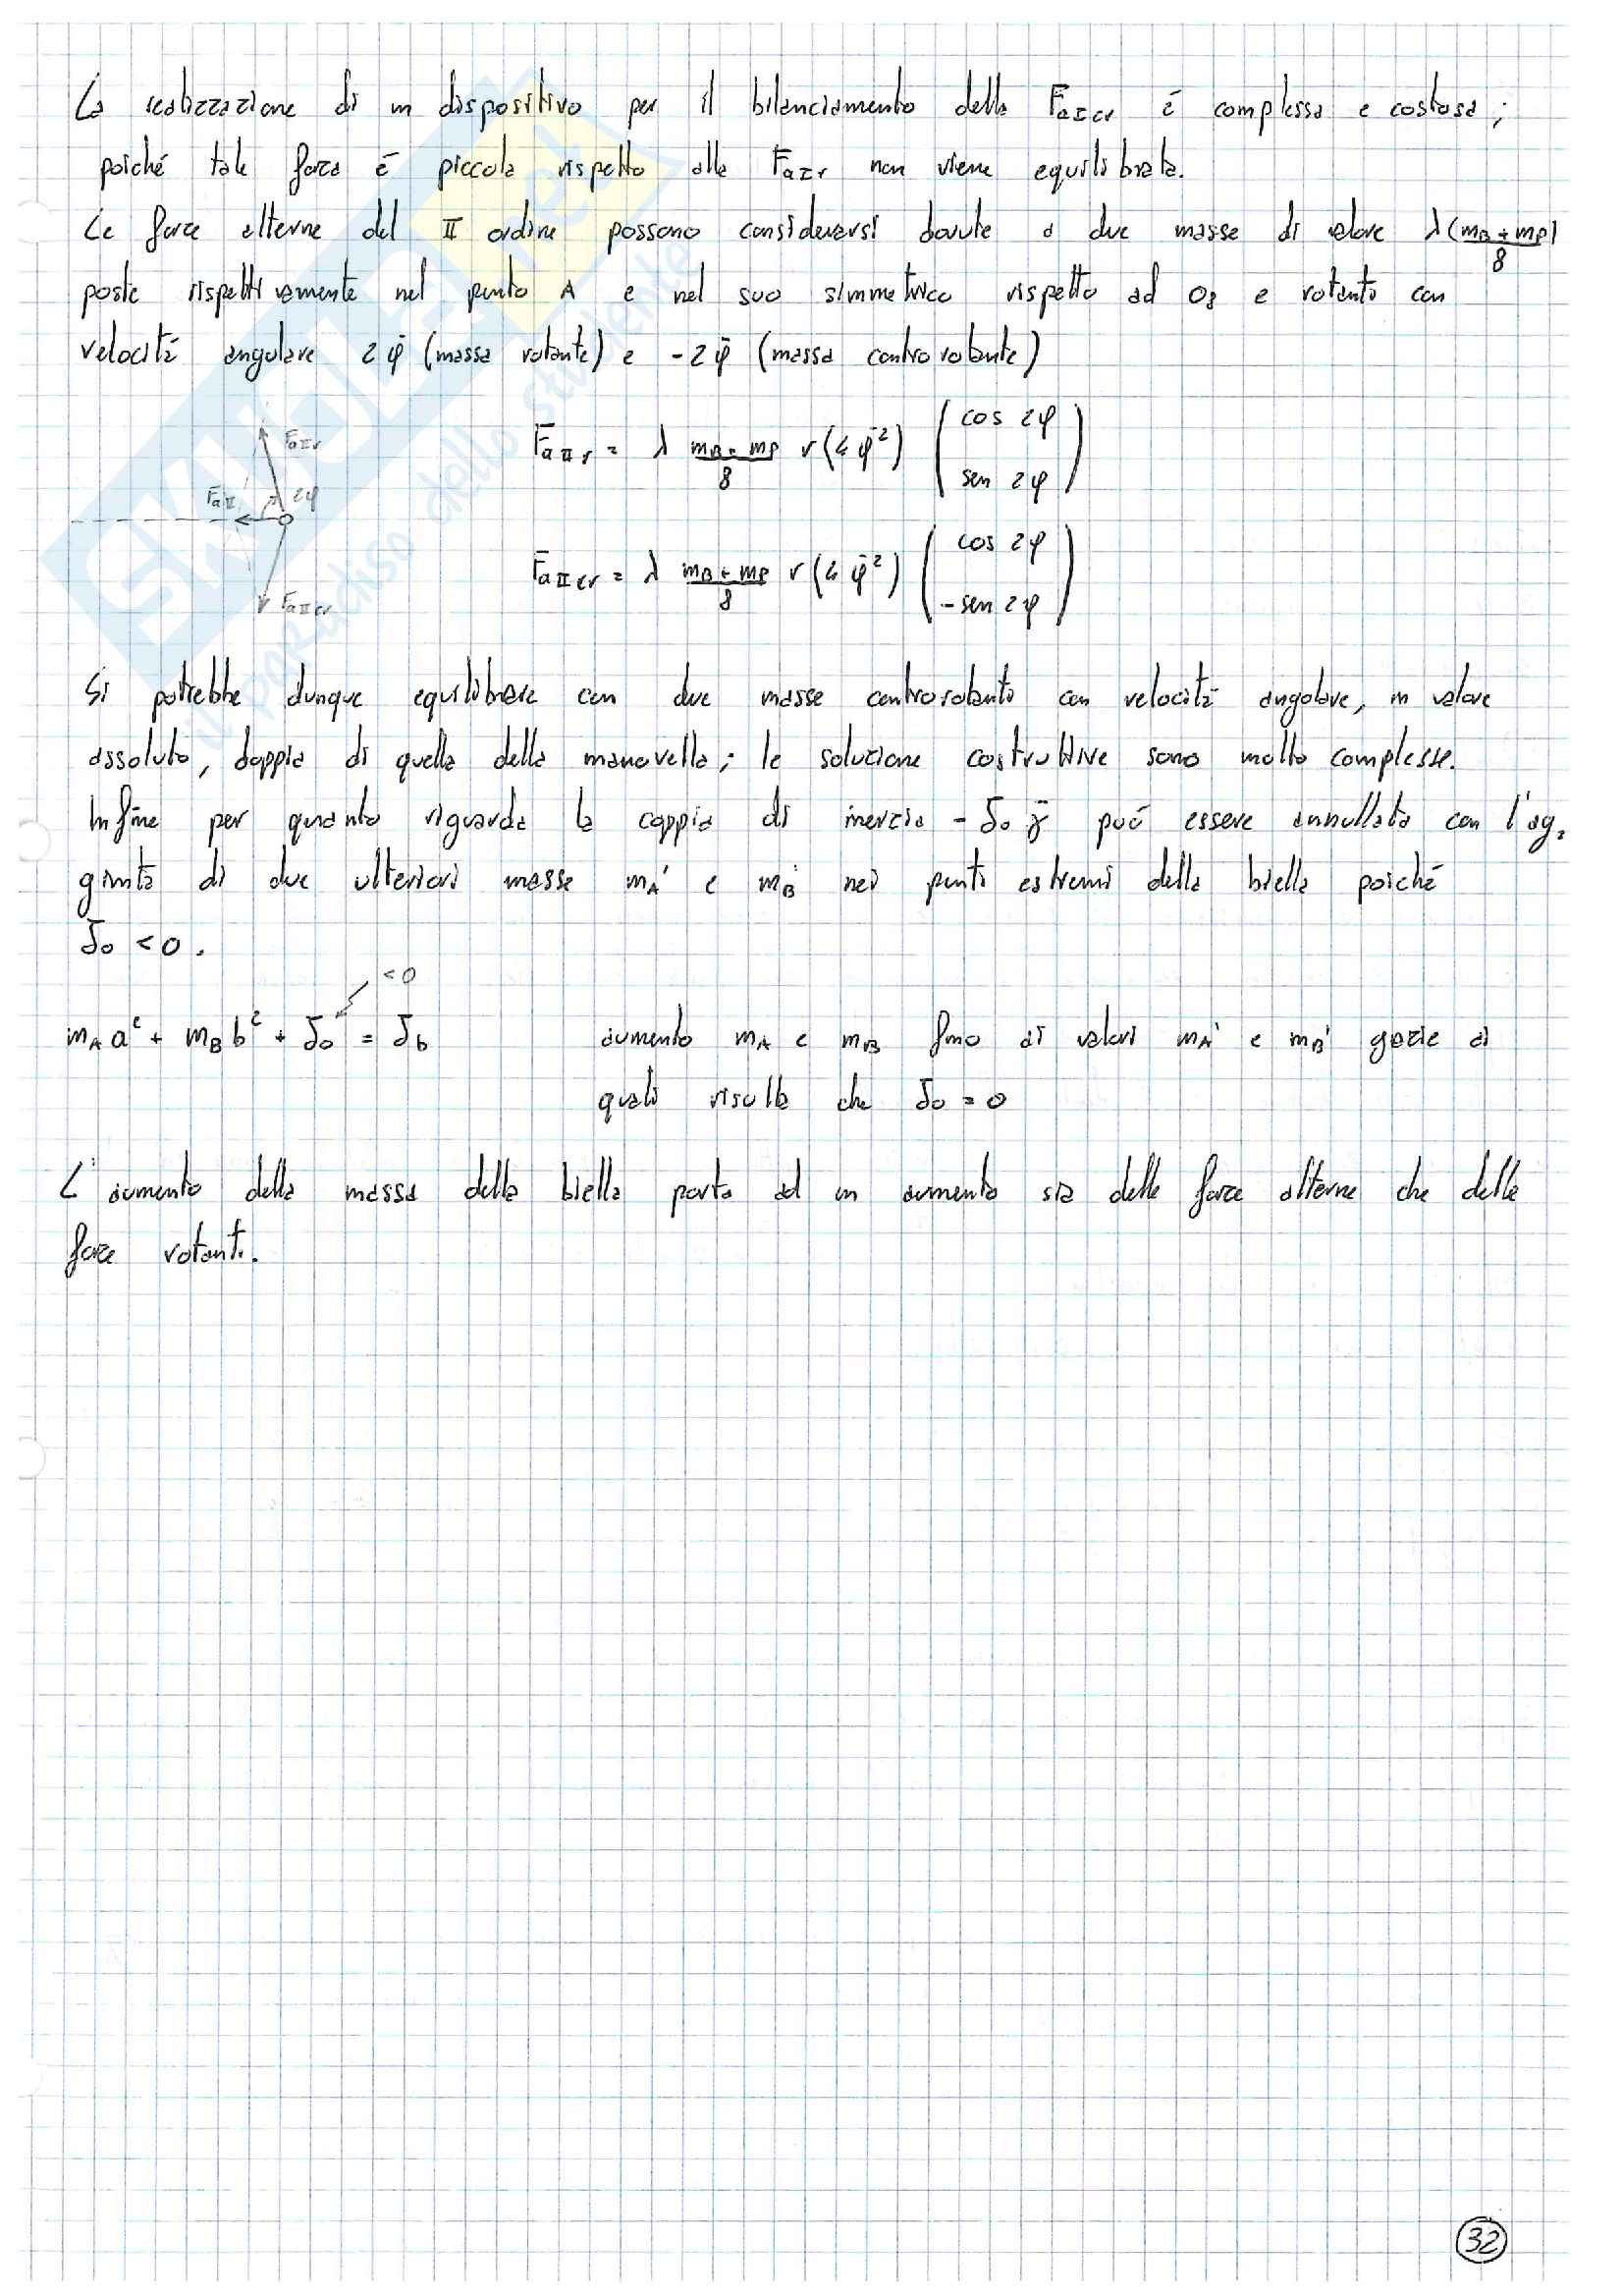 La realizzazione di un dispositivo per il bilanciamento della FaIcr è complessa e costosa;
poiché tale forza è piccola rispetto alla FaIr non viene equilibrata.
Le forze alterne del II ordine possono considerarsi dovute a due masse di valore λ(mB+mP)/8
poste rispettivamente nel punto A e nel suo simmetrico rispetto ad O3 e rotanti con
velocità angolare 2φ̇ (massa rotante) e -2φ̇ (massa controrotante)
FaIIr = λ (mB+mP)/8 r (4φ̇²) (cos 2φ
sen 2φ)
FaIIr
FaII
2φ
FaIIcr
FaIIcr = λ (mB+mP)/8 r (4φ̇²) (cos 2φ
-sen 2φ)
Si potrebbe dunque equilibrare con due masse controrotanti con velocità angolare, in valore
assoluto, doppia di quella della manovella; le soluzione costruttive sono molto complesse.
Infine per quanto riguarda la coppia di inerzia - J0 γ̈ può essere annullata con l'ag,
giunta di due ulteriori masse mA' e mB' nei punti estremi della biella poiché
J0 < 0.
<0
mA a² + mB b² + J0 = Jb
aumento mA e mB fino ai valori mA' e mB' grazie ai
quali risulta che J0 = 0
L'aumento della massa della biella porta ad un aumento sia delle forze alterne che delle
forze rotanti.
32
SKUOLA.net
il paradiso dello studente